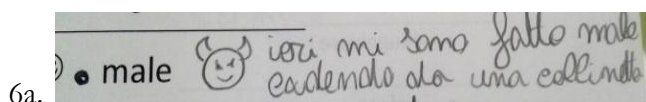 male ieri mi sono fatto male
cadendo da una collinetta
6a.